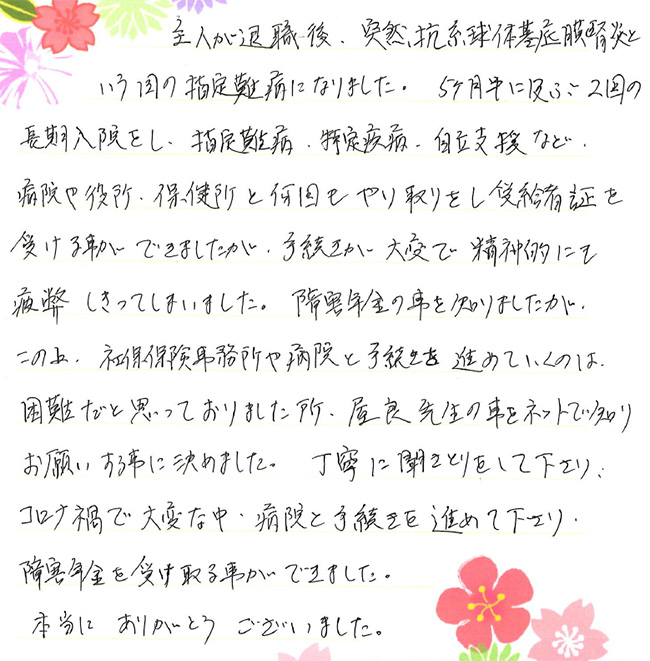 主人が退職後、突然抗糸球体基底膜腎炎と
いう国の指定難病になりました。 5ヶ月半に及ぶ2回の
長期入院をし、指定難病、特定疾病、自立支援など、
病院や役所、保健所と何回もやり取りをし受給者証を
受ける事ができましたが、手続きが大変で精神的にも
疲弊しきってしまいました。 障害年金の事を知りましたが、
この上、社保保険事務所や病院と手続きを進めていくのは、
困難だと思っておりました所、屋良先生の事をネットで知り
お願いする事に決めました。 丁寧に聞きとりをして下さり、
コロナ禍で大変な中、病院と手続きを進めて下さり、
障害年金を受け取る事ができました。
本当に ありがとう ございました。